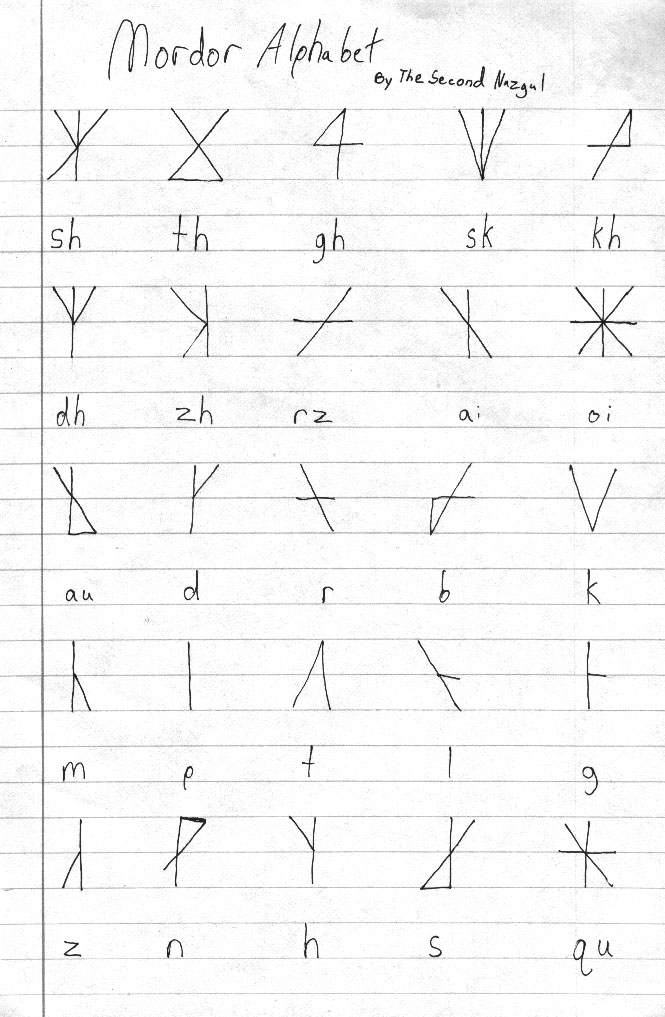 Mordor Alphabet
By The Second Nazgul
sh th gh sk kh
dh zh rz ai oi
au d r b k
m p t l g
z n h s qu